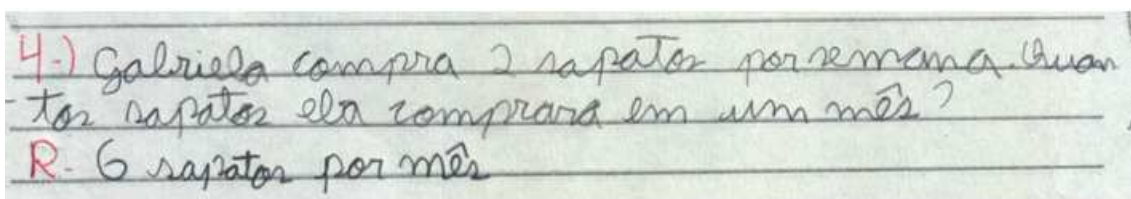 4-) Gabriela compra 2 sapatos por semana. Quan
tos sapatos ela comprara em um mês?
R- 6 sapatos por mês